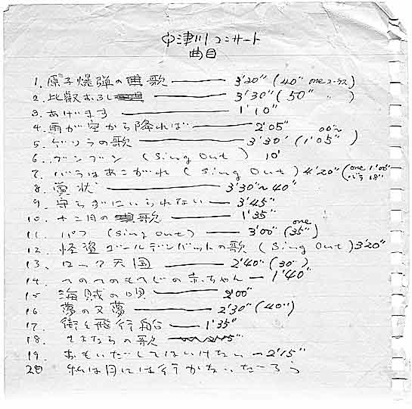 中津川コンサート
曲目
1. 原子爆弾の歌 —— 3'20" (40" oneコーラス)
2. 比叡おろし —— 3'30" (50" 〃 )
3. あげます —— 1'10"
4. 雨が空から降れば —— 2'05"
5. ゲジゲジの歌 —— 3'30" (1'05" )
6. ブンブン (Sing Out) 10'
7. バラはあこがれ (Sing Out) 4'20" (one 1'05"
8. 賞状 —— 3'30"~40"
9. 守らずにいられない — 3'45"
10. 十二月の歌 —— 1'35"
11. パフ (Sing out) —— 3'00" (one 35")
12. 怪盗ゴールデンバットの歌 (Sing Out) 3'20"
13. ロック天国 —— 2'40" (30")
14. へのへのもへじの赤ちゃん — 1'40"
15. 海賊の唄 —— 2'00"
16. 夢の又夢 —— 2'30" (40")
17. 街と飛行船 —— 1'35"
18. さよならの歌
19. おもいだしてはいけない — 2'15"
20 私は月には行かないだろう